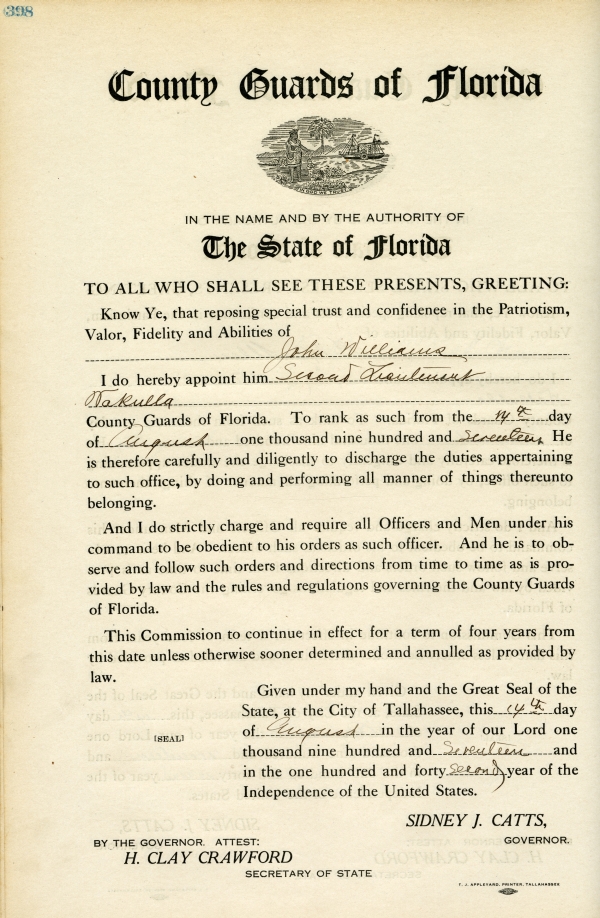 398
County Guards of Florida
IN THE NAME AND BY THE AUTHORITY OF
The State of Florida
TO ALL WHO SHALL SEE THESE PRESENTS, GREETING:
Know Ye, that reposing special trust and confidenee in the Patriotism,
Valor, Fidelity and Abilities of
John Williams
I do hereby appoint him Second Lieutenant
Wakulla
County Guards of Florida. To rank as such from the 14th day
of August one thousand nine hundred and seventeen He
is therefore carefully and diligently to discharge the duties appertaining
to such office, by doing and performing all manner of things thereunto
belonging.
And I do strictly charge and require all Officers and Men under his
command to be obedient to his orders as such officer. And he is to ob-
serve and follow such orders and directions from time to time as is pro-
vided by law and the rules and regulations governing the County Guards
of Florida.
This Commission to continue in effect for a term of four years from
this date unless otherwise sooner determined and annulled as provided by
law.
Given under my hand and the Great Seal of the
State, at the City of Tallahassee, this 14th day
[SEAL] of August in the year of our Lord one
thousand nine hundred and Seventeen and
in the one hundred and forty second year of the
Independence of the United States.
SIDNEY J. CATTS,
BY THE GOVERNOR. ATTEST: GOVERNOR.
H. CLAY CRAWFORD
SECRETARY OF STATE
T. J. APPLEYARD, PRINTER, TALLAHASSEE